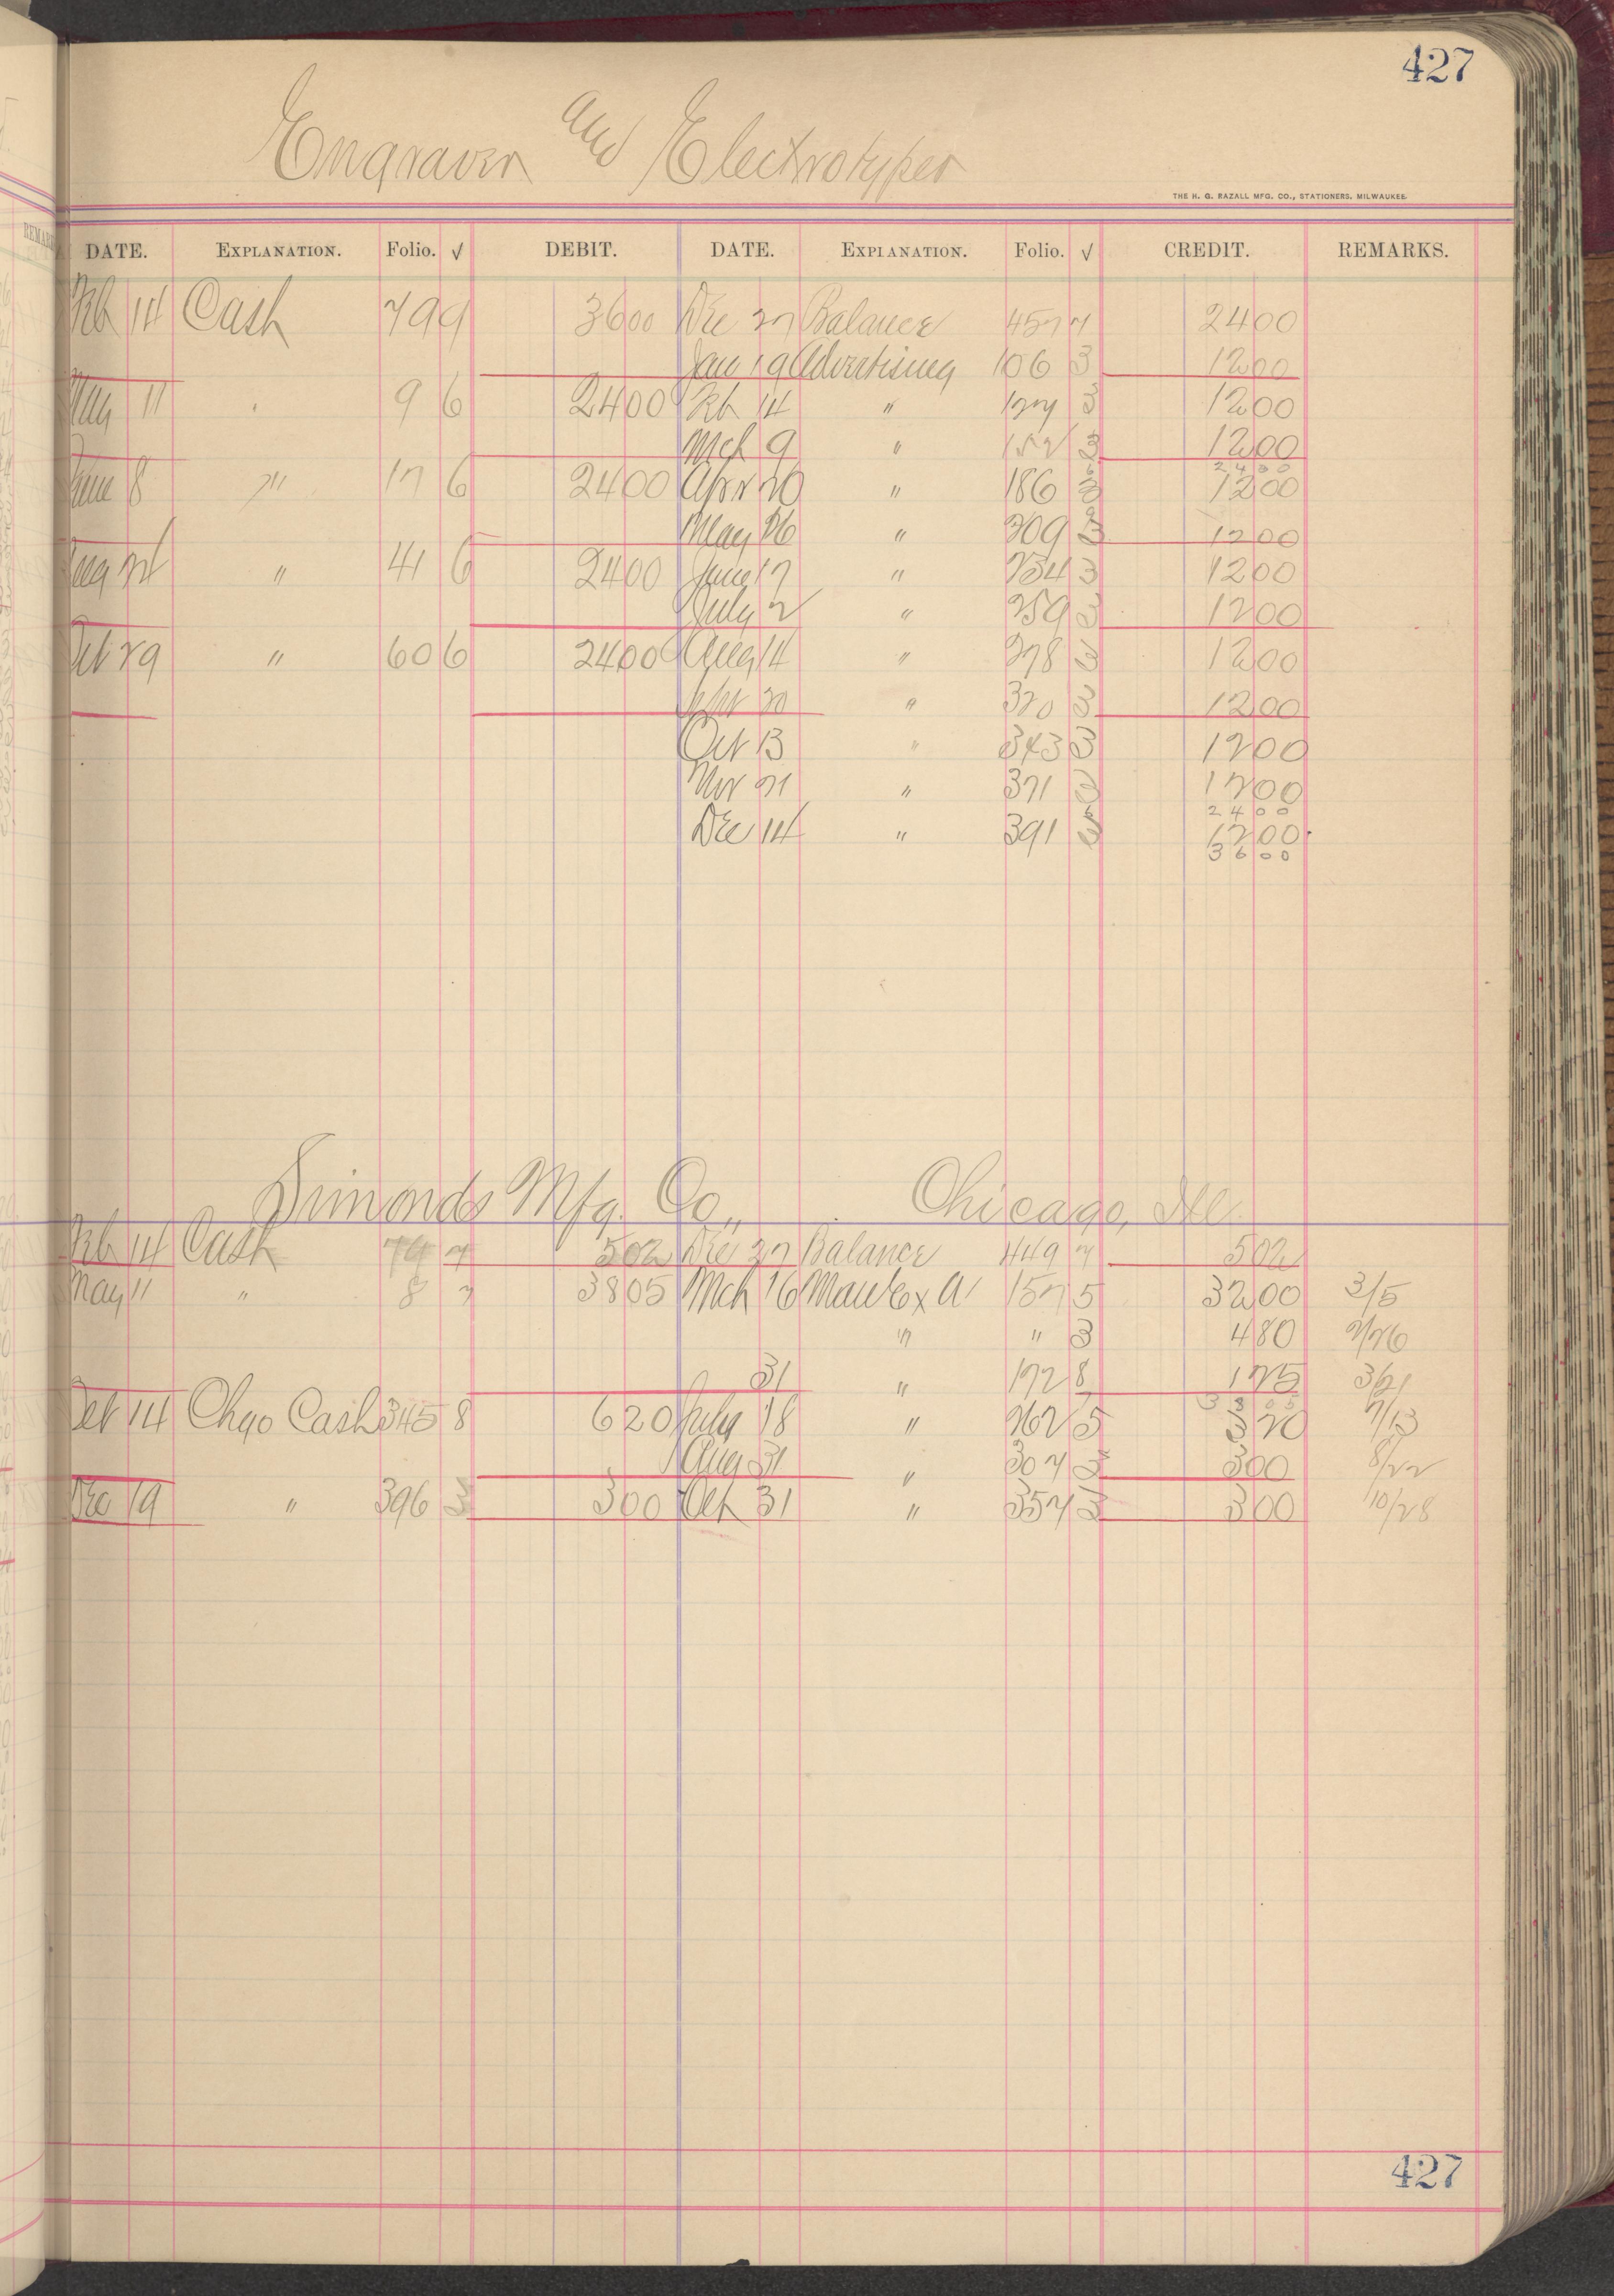 427
Engraver and Electrotyper
THE H. G. RAZALL MFG. CO., STATIONERS, MILWAUKEE.
DATE. EXPLANATION. Folio. √ DEBIT. DATE. EXPLANATION. Folio. √ CREDIT. REMARKS.
Feb 14 Cash 79 9 3600 Dec 27 Balance 457 7 2400
Jan 19 Advertising 106 3 1200
May 11 9 6 2400 Feb 14 " 127 3 1200
Mch 9 " 152 3 1200
2400
June 8 " 17 6 2400 Apr 20 " 186 3 1200
May 26 " 209 3 1200
Aug 24 " 41 6 2400 June 17 " 234 3 1200
July 2 " 259 3 1200
Oct 29 " 60 6 2400 Aug 14 " 278 3 1200
Sept 20 " 320 3 1200
Oct 13 " 343 3 1200
Nov 21 " 371 3 1200
2400
Dec 14 " 391 3 1200
3600
Simonds Mfg. Co., Chicago, Ill.
Feb 14 Cash 74 7 502 Dec 27 Balance 449 7 502
May 11 " 8 7 3805 Mch 16 Manl Ex a 157 5 3200 3/5
" " 3 480 2/26
31 " 172 8 125 3/21
3805
Oct 14 Chgo Cash 345 8 620 July 18 " 262 5 320 7/13
Aug 31 " 307 3 300 8/22
Dec 19 " 396 3 300 Oct 31 " 357 3 300 10/28
427